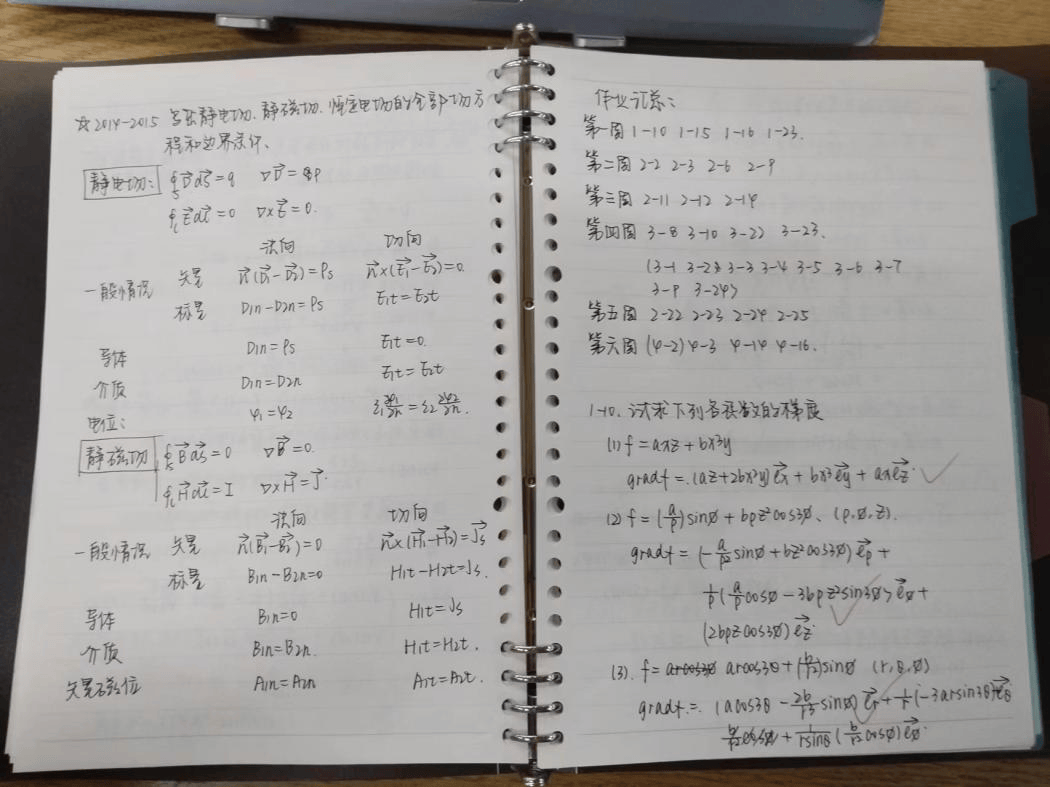 ☆2014-2015 写出静电场、静磁场、恒定电场的全部场方
程和边界条件、
静电场: ∮s D⃗dS⃗=q ∇D⃗=ρ
∮c E⃗dl⃗=0 ∇×E⃗=0.
法向 切向
一般情况 矢量 n⃗(D⃗1-D⃗2)=ρs n⃗×(E⃗1-E⃗2)=0.
标量 D1n-D2n=ρs E1t=E2t
导体 D1n=ρs E1t=0.
介质 D1n=D2n E1t=E2t
电位: φ1=φ2 ε1 ∂φ1/∂n=ε2 ∂φ2/∂n.
静磁场 ∮s B⃗dS⃗=0 ∇B⃗=0.
∮c H⃗dl⃗=I ∇×H⃗=J⃗.
法向 切向
一般情况 矢量 n⃗(B⃗1-B⃗2)=0 n⃗×(H⃗1-H⃗2)=J⃗s
标量 B1n-B2n=0 H1t-H2t=Js.
导体 B1n=0 H1t=Js
介质 B1n=B2n. H1t=H2t.
矢量磁位 A1n=A2n A1t=A2t.
作业汇总:
第一周 1-10 1-15 1-16 1-23.
第二周 2-2 2-3 2-6 2-9
第三周 2-11 2-12 2-14
第四周 3-8 3-10 3-22 3-23.
(3-1 3-2 3-3 3-4 3-5 3-6 3-7
3-9 3-24)
第五周 2-22 2-23 2-24 2-25
第六周 (4-2) 4-3 4-14 4-16.
1-10、试求下列各函数的梯度
(1) f=axz+bx³y
gradf=.(az+2bx²y)e⃗x+bx³e⃗y+axe⃗z.
(2) f=(a/ρ)sinφ+bρz²cos3φ、(ρ.φ.z).
gradf=(-a/ρ² sinφ+bz²cos3φ)e⃗ρ+
1/ρ(a/ρ cosφ-3bρz²sin3φ)e⃗φ+
(2bρzcos3φ)e⃗z.
(3). f= arcos3θ+(b/r²)sinφ (r,θ,φ)
gradf=.(acos3θ-2b/r³ sinφ)e⃗r+1/r(-3arsin3θ)e⃗θ
+1/rsinθ(b/r² cosφ)e⃗φ.